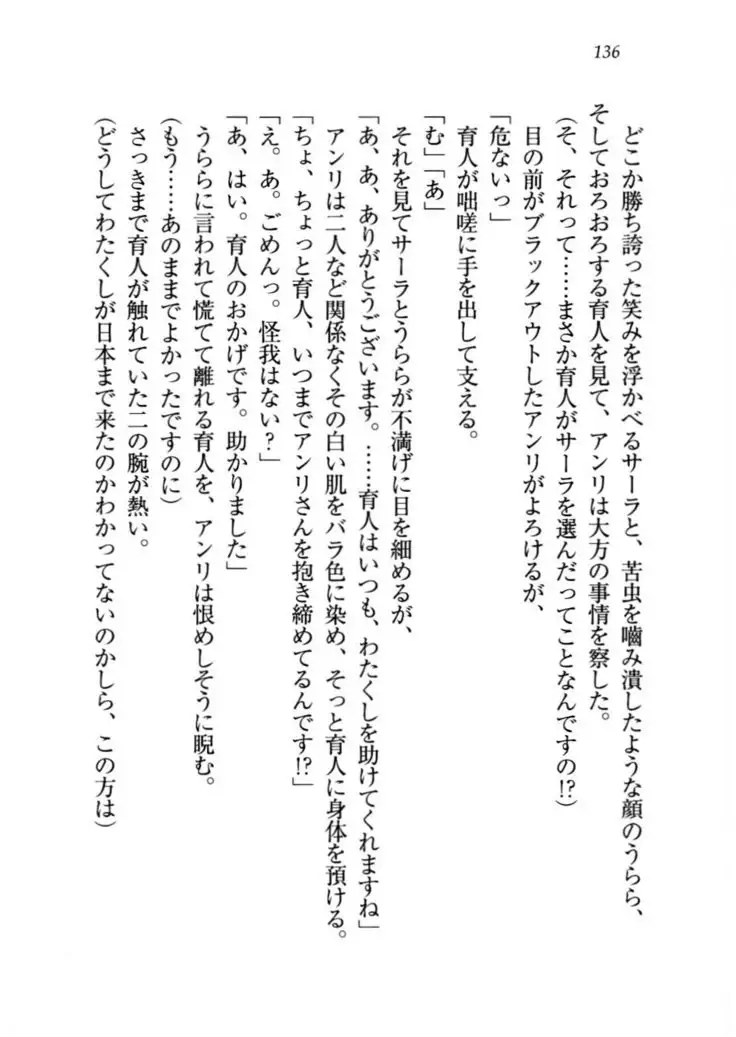 136
どこか勝ち誇った笑みを浮かべるサーラと、苦虫を嚙み潰したような顔のうらら、
そしておろおろする育人を見て、アンリは大方の事情を察した。
(そ、それって……まさか育人がサーラを選んだってことなんですの!?)
目の前がブラックアウトしたアンリがよろけるが、
「危ないっ」
育人が咄嗟に手を出して支える。
「む」「あ」
それを見てサーラとうららが不満げに目を細めるが、
「あ、あ、ありがとうございます。……育人はいつも、わたくしを助けてくれますね」
アンリは二人など関係なくその白い肌をバラ色に染め、そっと育人に身体を預ける。
「ちょ、ちょっと育人、いつまでアンリさんを抱き締めてるんです!?」
「え。あ。ごめんっ。怪我はない?」
「あ、はい。育人のおかげです。助かりました」
うららに言われて慌てて離れる育人を、アンリは恨めしそうに睨む。
(もう……あのままでよかったですのに)
さっきまで育人が触れていた二の腕が熱い。
(どうしてわたくしが日本まで来たのかわかってないのかしら、この方は)